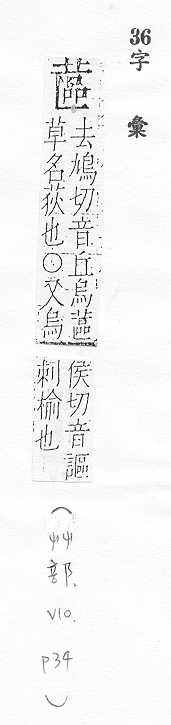 36字彙
蓲
去鳩切音丘烏蓲
草名荻也○又烏
侯切音謳
刺榆也
(艸部. V10. P34)